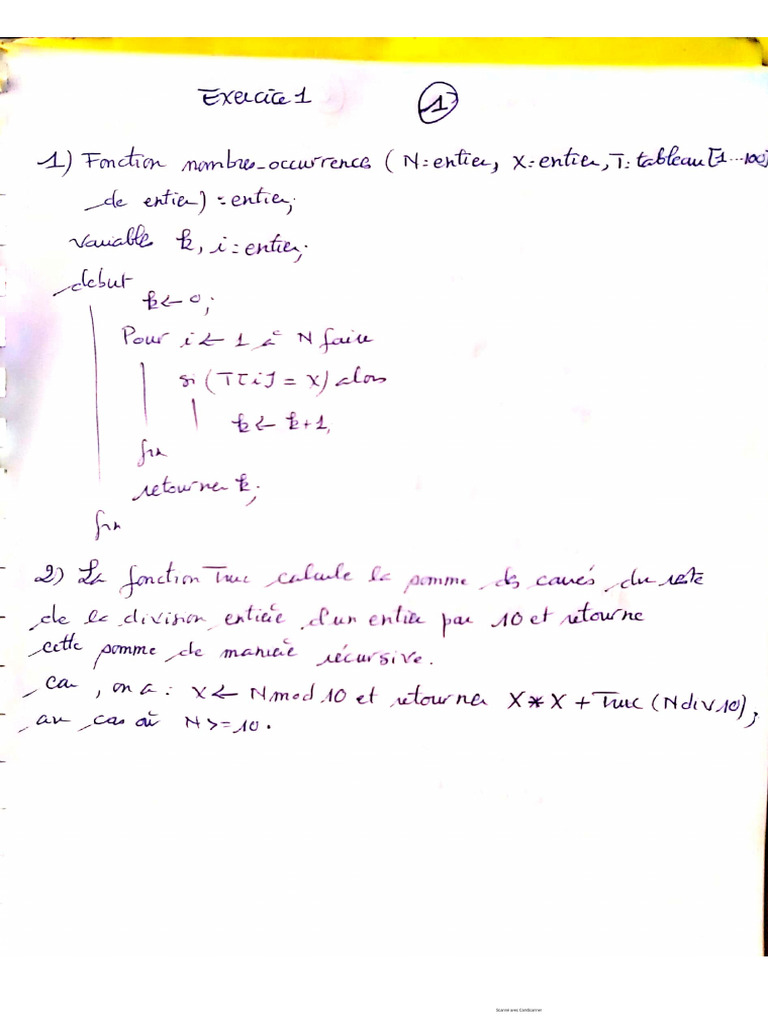 Exercice 1
1
1) Fonction nombres_occurrences (N:entier, X:entier, T:tableau[1...100]
de entier) : entier;
Variable k, i : entier;
debut
k ← 0;
Pour i ← 1 à N faire
si (T[i] = X) alors
k ← k+1;
fin
retourner k;
fin
2) La fonction Truc calcule la somme des carrés du reste
de la division entière d'un entier par 10 et retourne
cette somme de manière récursive.
car, on a : X ← N mod 10 et retourner X * X + Truc (N div 10);
au cas où N >= 10.
Scanné avec CamScanner